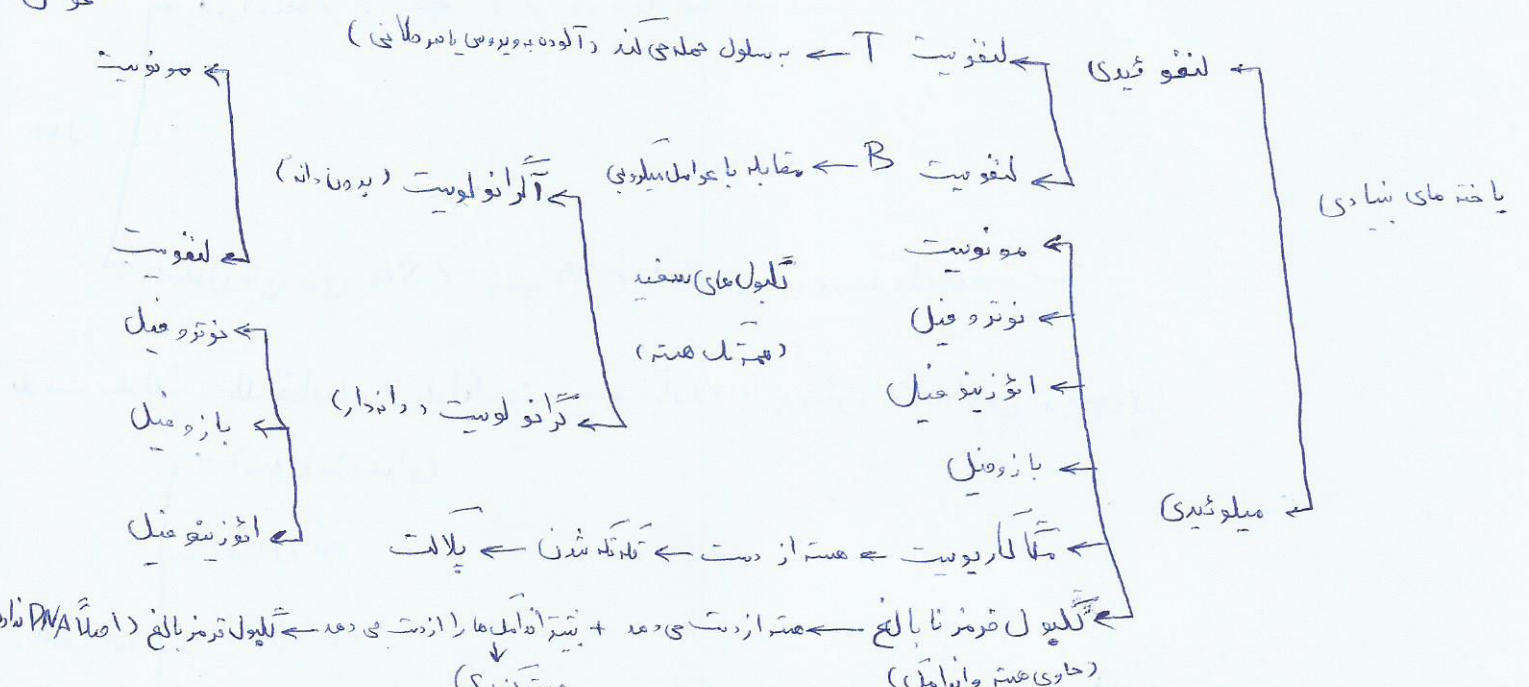 یاخته های بنیادی
لنفوئیدی
لنفوسیت T ← به سلول حمله می کند (آلوده به ویروس یا سرطانی)
لنفوسیت B ← مقابله با عوامل میکروبی
میلوئیدی
مونوسیت
نوتروفیل
ائوزینوفیل
بازوفیل
مگاکاریوسیت ← هسته از دست ← تکه تکه شدن ← پلاکت
گلبول قرمز نابالغ ← هسته از دست می دهد + بقیه اندامک ها را از دست می دهد ← گلبول قرمز بالغ (اصلاً DNA ندارد
(حاوی هسته و اندامک)
گلبول های سفید
(همه تک هسته)
آگرانولوسیت (بدون دانه)
مونوسیت
لنفوسیت
گرانولوسیت (دانه دار)
نوتروفیل
بازوفیل
ائوزینوفیل